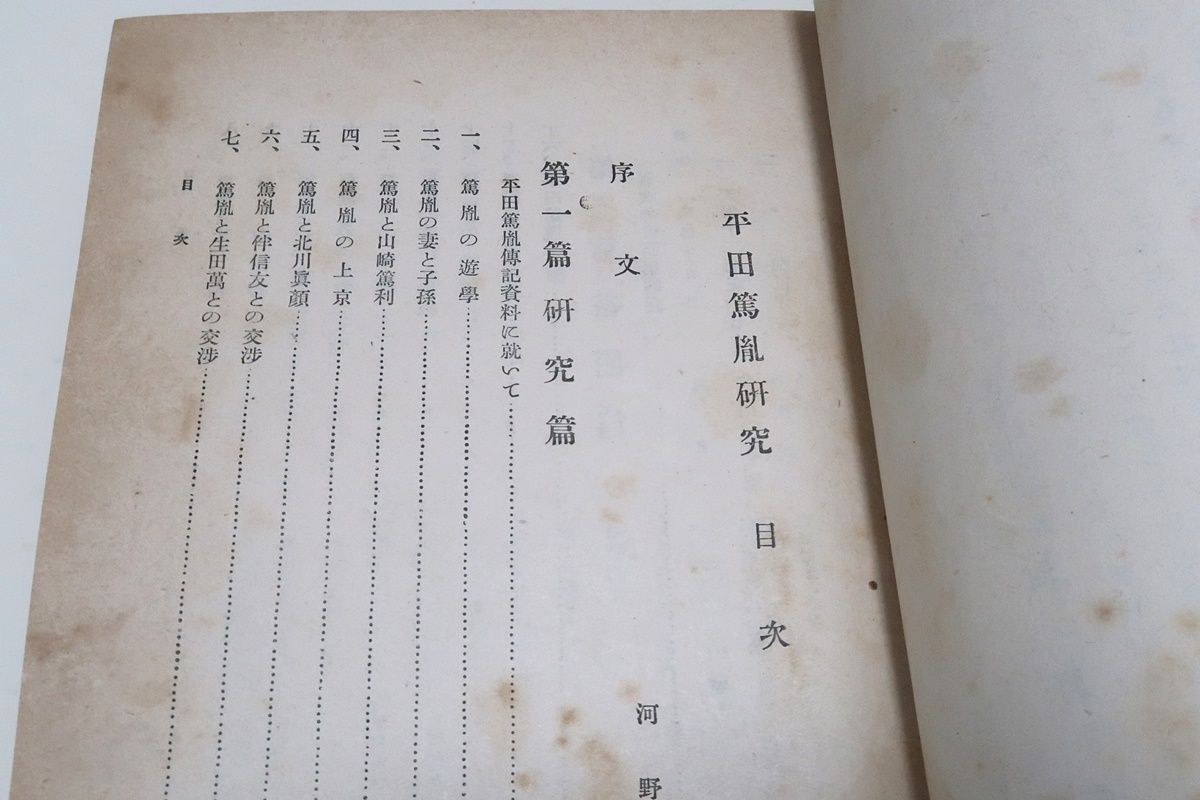 平田篤胤硏究 目次
序文 河野
第一篇 硏究篇
平田篤胤傳記資料に就いて
一、篤胤の遊學
二、篤胤の妻と子孫
三、篤胤と山崎篤利
四、篤胤の上京
五、篤胤と北川眞顔
六、篤胤と伴信友との交渉
七、篤胤と生田萬との交渉
目次